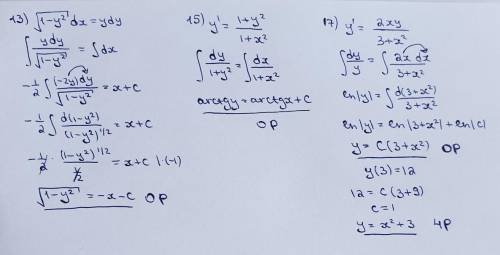 13) √(1-y²) dx = ydy
∫ ydy/√(1-y²) = ∫dx
-1/2 ∫ (-2y)dy/√(1-y²) = x+c
-1/2 ∫ d(1-y²)/(1-y²)^1/2 = x+c
-1/2 · (1-y²)^1/2 / 1/2 = x+c |·(-1)
√(1-y²) = -x-c OP
15) y' = (1+y²)/(1+x²)
∫ dy/(1+y²) = ∫ dx/(1+x²)
arctgy = arctgx + C
OP
17) y' = 2xy/(3+x²)
∫ dy/y = ∫ 2x dx/(3+x²)
ln|y| = ∫ d(3+x²)/(3+x²)
ln|y| = ln|3+x²| + ln|c|
y = C(3+x²) OP
y(3) = 12
12 = C(3+9)
C = 1
y = x²+3 ЧР